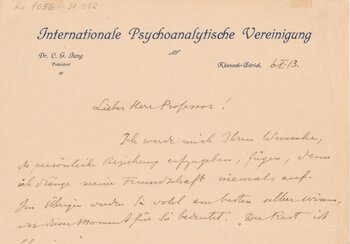 Internationale Psychoanalytische Vereinigung
Dr. C. G. Jung
Präsident
Küsnach-Zürich, 6 I 13.
Lieber Herr Professor!
Ich werde mich Ihrem Wunsche,
die persönliche Beziehung aufzugeben, fügen, denn
ich dränge meine Freundschaft niemals auf.
Im Übrigen werden Sie wohl am besten selber wissen,
was dieser Moment für Sie bedeutet. "Der Rest ist